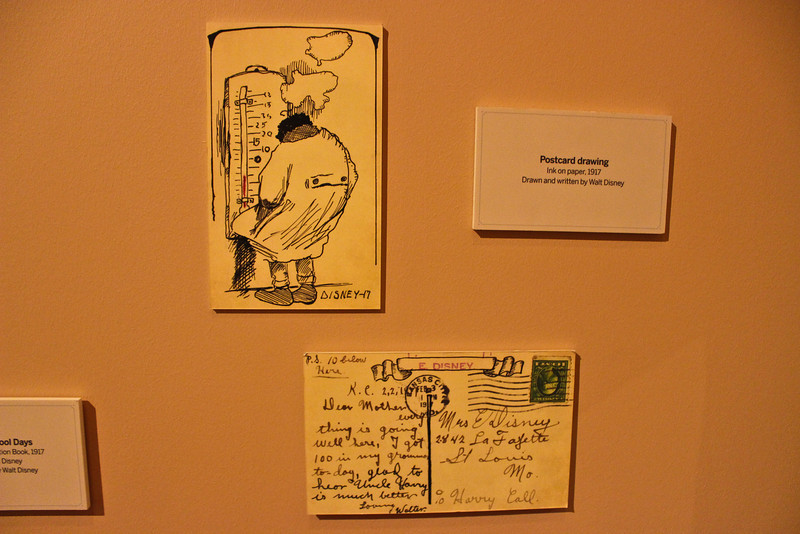 DISNEY-17
Postcard drawing
Ink on paper, 1917
Drawn and written by Walt Disney
P.S. 10 below
Here.
E. DISNEY
KANSAS CITY
FEB 3
K.C. 2,2,1
Dear Mother
every
thing is going
well here, I got
100 in my grammar
to-day, glad to
hear Uncle Harry
is much better
Loving
Walter.
Mrs E Disney
2842 La Fayette
St Louis
Mo.
c/o Harry Call.
ool Days
tion Book, 1917
Disney
Walt Disney